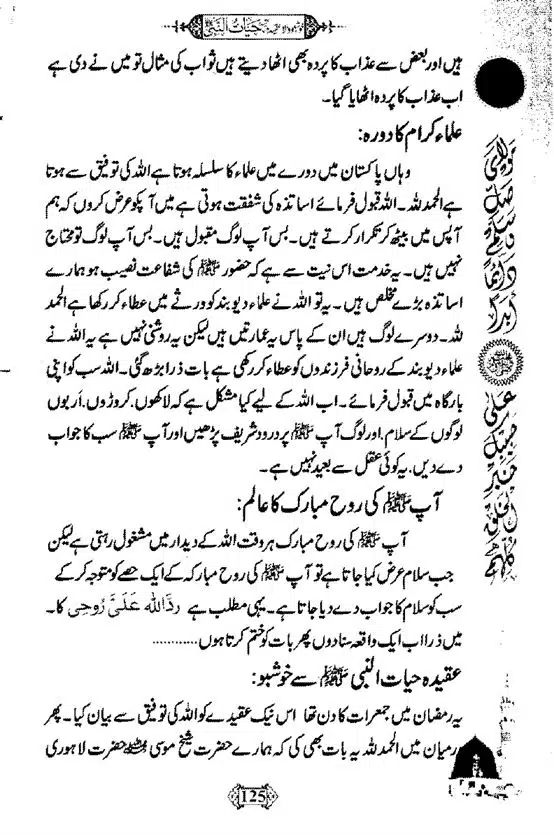 حیات النبیؐ
ہیں اور بعض سے عذاب کا پردہ بھی اٹھا دیتے ہیں ثواب کی مثال تو میں نے دی ہے
اب عذاب کا پردہ اٹھایا گیا۔
علماء کرام کا دورہ:
وہاں پاکستان میں دورے میں علماء کا سلسلہ ہوتا ہے اللہ کی توفیق سے ہوتا
ہے الحمد للہ۔ اللہ قبول فرمائے اساتذہ کی شفقت ہوتی ہے میں آپکو عرض کروں کہ ہم
آپس میں بیٹھ کر تکرار کرتے ہیں۔ بس آپ لوگ مقبول ہیں۔ بس آپ لوگ تو محتاج
نہیں ہیں۔ یہ خدمت اس نیت سے ہے کہ حضور ﷺ کی شفاعت نصیب ہو ہمارے
اساتذہ بڑے مخلص ہیں۔ یہ تو اللہ نے علماء دیوبند کو ورثے میں عطاء کر رکھا ہے الحمد
للہ۔ دوسرے لوگ ہیں ان کے پاس یہ عمارتیں ہیں لیکن یہ روشنی نہیں ہے یہ اللہ نے
علماء دیوبند کے روحانی فرزندوں کو عطاء کر رکھی ہے بات ذرا بڑھ گئی۔ اللہ سب کو اپنی
بارگاہ میں قبول فرمائے۔ اب اللہ کے لیے کیا مشکل ہے کہ لاکھوں، کروڑوں، اربوں
لوگوں کے سلام، اور لوگ آپ ﷺ پر درود شریف پڑھیں اور آپ ﷺ سب کا جواب
دے دیں، یہ کوئی عقل سے بعید نہیں ہے۔
آپ ﷺ کی روح مبارک کا عالم:
آپ ﷺ کی روح مبارک ہر وقت اللہ کے دیدار میں مشغول رہتی ہے لیکن
جب سلام عرض کیا جاتا ہے تو آپ ﷺ کی روح مبارکہ کے ایک حصے کو متوجہ کر کے
سب کو سلام کا جواب دے دیا جاتا ہے۔ یہی مطلب ہے ردَّ اللہ عَلَیَّ رُوحِی کا۔
میں ذرا اب ایک واقعہ سنا دوں پھر بات کو ختم کرتا ہوں............
عقیدہ حیات النبی ﷺ سے خوشبو:
یہ رمضان میں جمعرات کا دن تھا اس نیک عقیدے کو اللہ کی توفیق سے بیان کیا۔ پھر
رمیان میں الحمد للہ یہ بات بھی کی کہ ہمارے حضرت شیخ موسیٰ حضرت لاہوری
125
مولای صل وسلم دائما ابدا
علی حبیبک خیر الخلق کلہم